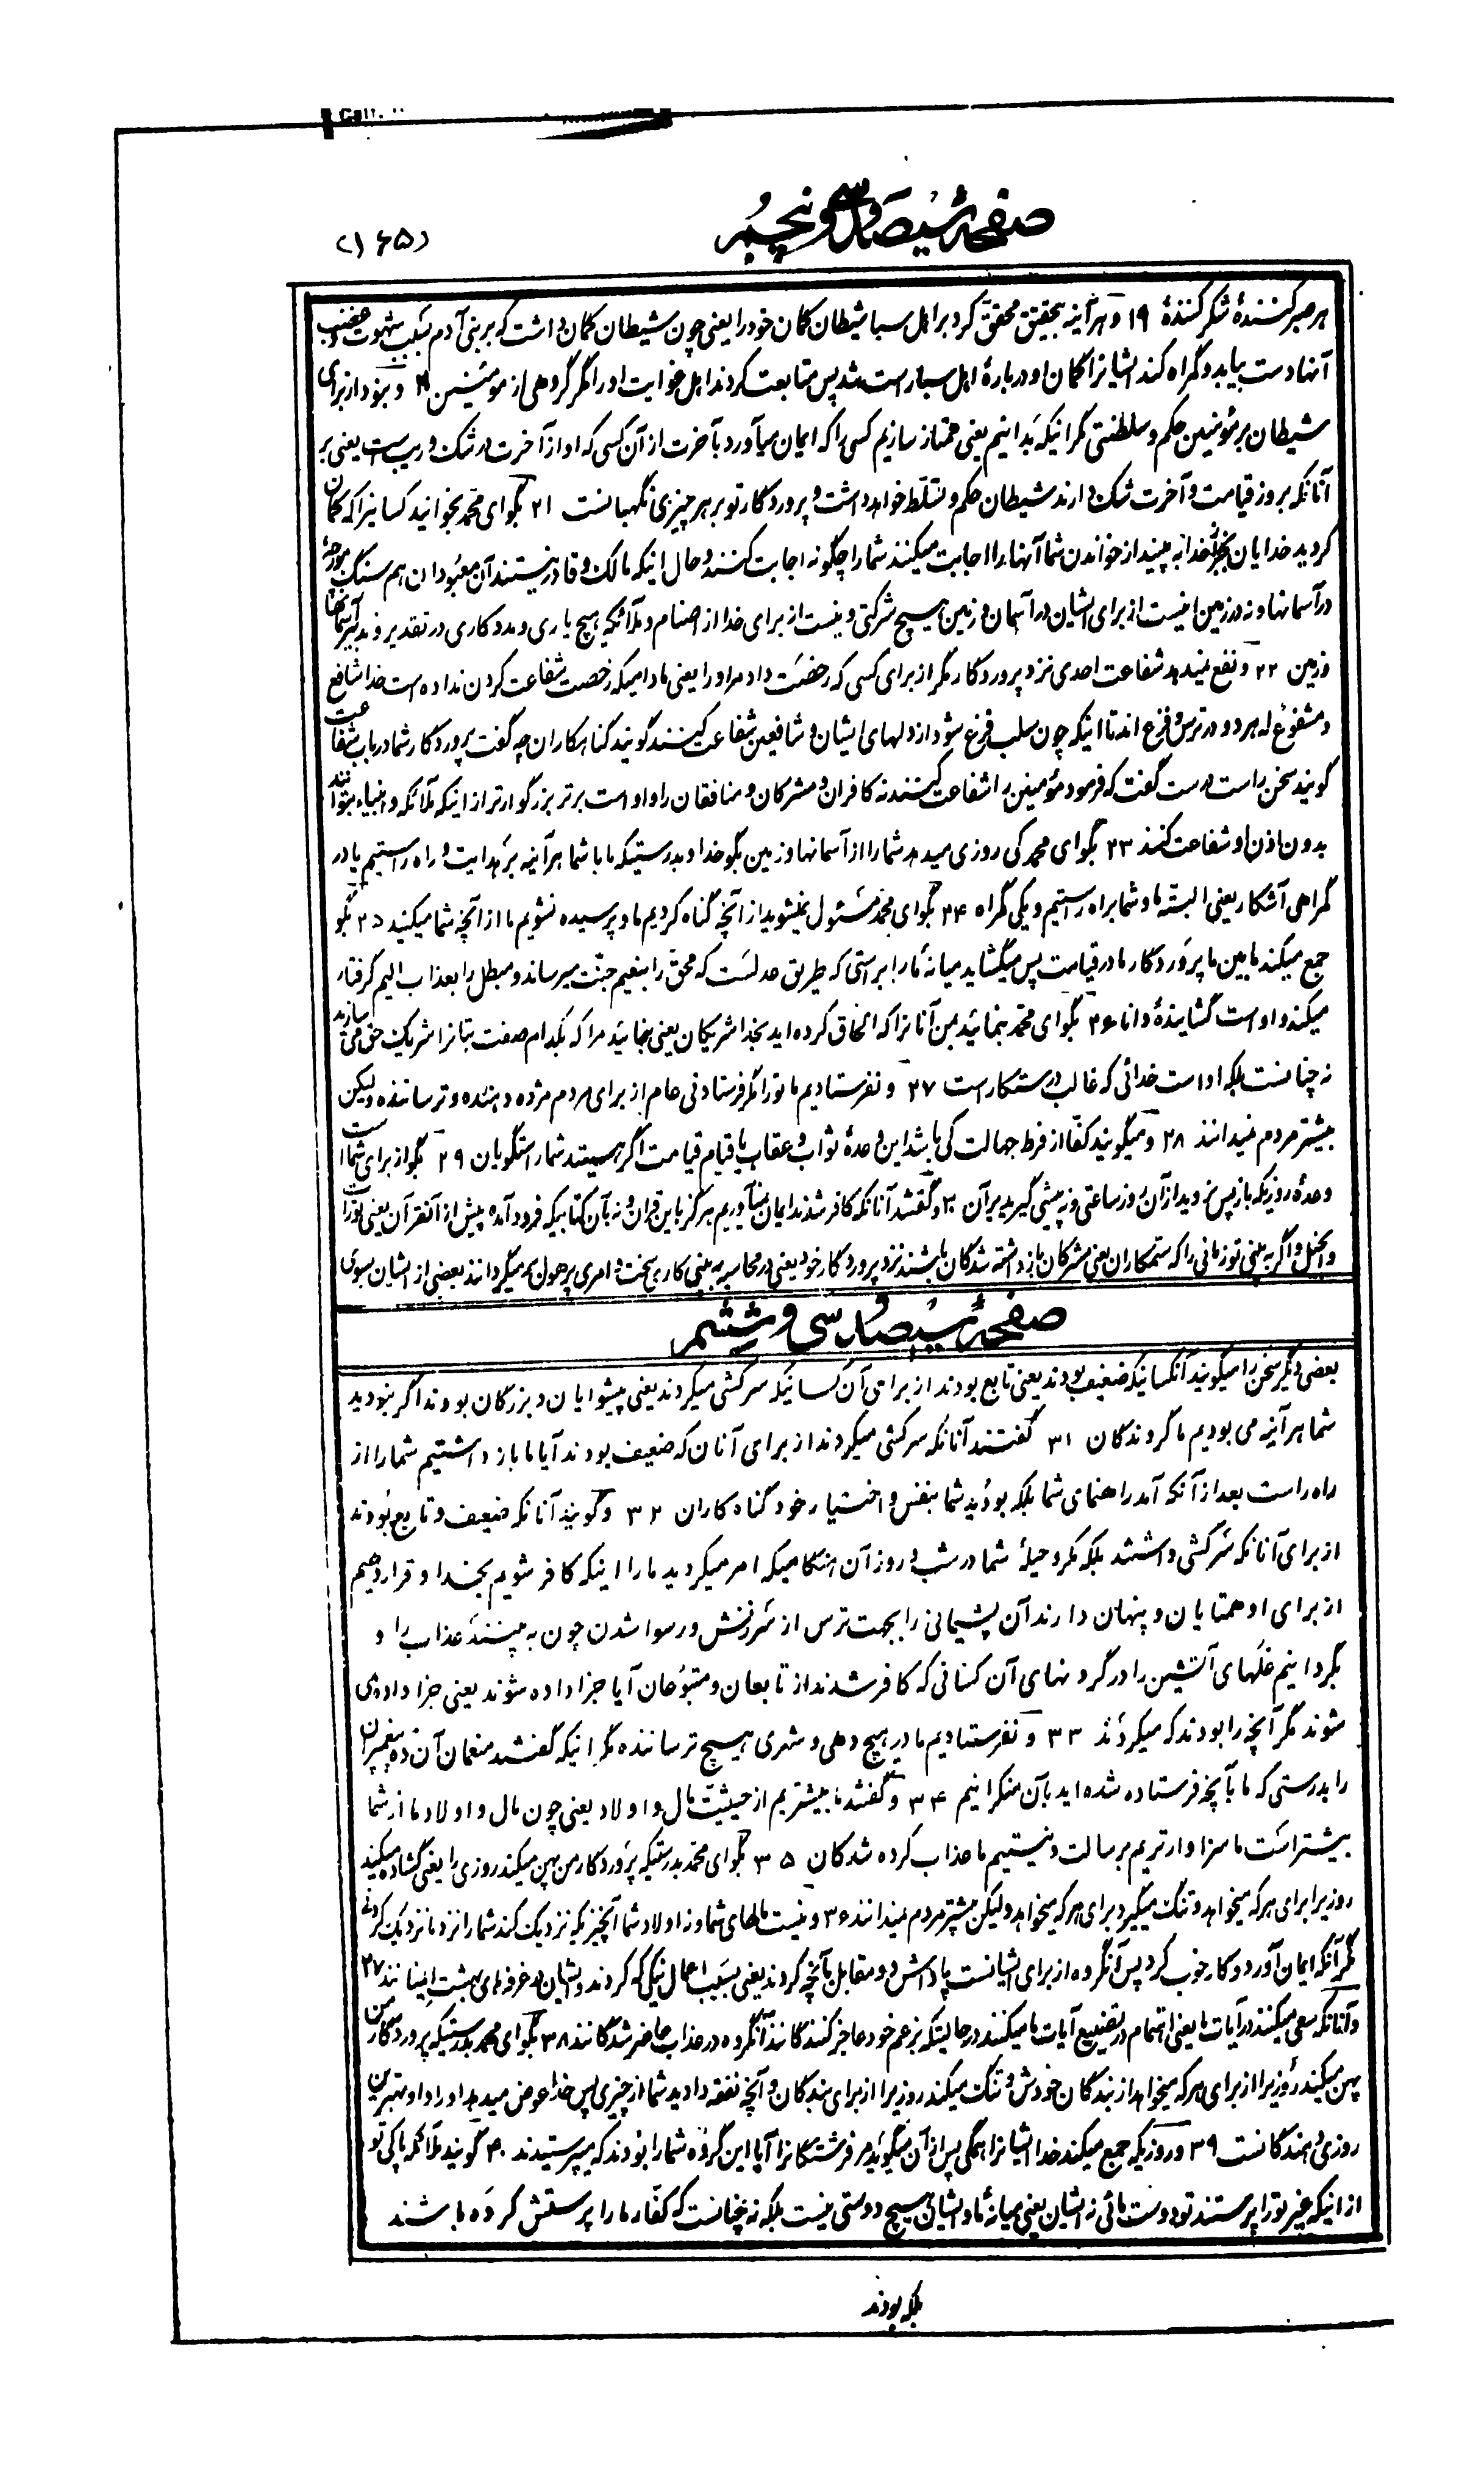 صفحهٔ سیصد و سی و پنجم
(۱۶۵)
هر صبر کنندهٔ شکر کنندهٔ ۱۹ و هر آینه بتحقیق محقق کرد بر اهل سبا شیطان گمان خود را یعنی چون شیطان گمان داشت که بر بنی آدم بسبب شهوت و غضب
آنها دست بیابد و گمراه کند ایشانرا گمان او دربارهٔ اهل سبا راست شد پس متابعت کردند اهل غوایت او را مگر گروهی از مؤمنین ۲۰ و نبود از برای
شیطان بر مؤمنین حکم و سلطنتی مگر اینکه بدانیم یعنی ممتاز سازیم کسی را که ایمان میآورد بآخرت از آن کسی که او از آخرت در شک و ریب است یعنی بر
آنانکه بروز قیامت و آخرت شک دارند شیطان حکم و تسلط خواهد داشت و پروردگار تو بر هر چیزی نگهبانست ۲۱ بگو ای محمد بخوانید کسانیرا که گمان
کردید خدایان بجز خدا به بینید از خواندن شما آنها را اجابت میکنند شما را چگونه اجابت کنند و حال اینکه مالک و قادر نیستند آن معبودان هم سنگ مورچهٔ
در آسمانها و نه در زمین و نیست از برای ایشان در آسمان و زمین هیچ شرکتی و نیست از برای خدا از اصنام و ملائکه هیچ یاری و مددکاری در تقدیر و تدبیر آسمانها
و زمین ۲۲ و نفع نمیدهد شفاعت احدی نزد پروردگار مگر از برای کسی که رخصت داد مر او را یعنی مادامیکه رخصت شفاعت کردن نداده است خدا شافع
و مشفوع له هر دو در ترس و فزع اند تا اینکه چون سلب فزع شود از دلهای ایشان و شافعین شفاعت کنند گویند گناهکاران چه گفت پروردگار شما در باب شفاعت
گویند سخن راست درست گفت که فرمود مؤمنین را شفاعت کنند نه کافران و مشرکان و منافقان را و او است برتر بزرگوارتر از اینکه ملائکه و انبیاء بتوانند
بدون اذن او شفاعت کنند ۲۳ بگو ای محمد کی روزی میدهد شما را از آسمانها و زمین بگو خدا و بدرستیکه ما با شما هر آینه بر هدایت و راه راستیم یا در
گمراهی آشکار یعنی البته ما و شما براه راستیم و یکی گمراه ۲۴ بگو ای محمد مسئول نمیشوید از آنچه گناه کردیم ما و پرسیده نشویم ما از آنچه شما میکنید ۲۵ بگو
جمع میکند مابین ما پروردگار ما در قیامت پس میگشاید میانهٔ ما را براستی که طریق عدلست که محق را بنعیم جنت میرساند و مبطل را بعذاب الیم گرفتار
میکند و او است گشایندهٔ دانا ۲۶ بگو ای محمد بنمائید بمن آنانرا که الحاق کرده اید بخدا شریکان یعنی بنمائید مرا که بکدام صفت بتانرا شریک حق می سازید
نه چنانست بلکه او است خدائی که غالب درستکار است ۲۷ و نفرستادیم ما تو را مگر فرستادنی عام از برای مردم مژده دهنده و ترساننده و لیکن
بیشتر مردم نمیدانند ۲۸ و میگویند کفار از فرط جهالت کی باشد این وعدهٔ ثواب و عقاب یا قیام قیامت اگر هستید شما راستگویان ۲۹ بگو از برای شما است
وعدهٔ روزیکه بازپس نروید از آن روز ساعتی و نه پیشی گیرید بر آن ۳۰ و گفتند آنانکه کافر شدند ایمان نمیآوریم هرگز باین قرآن و نه بآن کتابیکه فرود آمده پیش از آن قرآن یعنی تورات
و انجیل و اگر به بینی تو زمانی را که ستمکاران یعنی مشرکان بازداشته شدگان باشند نزد پروردگار خود یعنی در محاسبه به بینی کاری سخت و امری پرهول که میگردانند بعضی از ایشان بسوی
صفحهٔ سیصد و سی و ششم
بعضی دیگر سخن را میگویند آنکسانیکه ضعیف بودند یعنی تابع بودند از برای آن کسانیکه سرکشی میکردند یعنی پیشوایان و بزرگان بودند اگر نبودید
شما هر آینه می بودیم ما گروندگان ۳۱ گفتند آنانکه سرکشی میکردند از برای آنان که ضعیف بودند آیا ما باز داشتیم شما را از
راه راست بعد از آنکه آمد راهنمای شما بلکه بودید شما بنفس و اختیار خود گناه کاران ۳۲ و گویند آنانکه ضعیف و تابع بودند
از برای آنانکه سرکشی داشتند بلکه مکر و حیلهٔ شما در شب و روز آن هنگامیکه امر میکردید ما را اینکه کافر شویم بخدا و قرار دهیم
از برای او همتایان و پنهان دارند آن پشیمانی را بجهت ترس از سرزنش و رسوا شدن چون به بینند عذاب را و
بگردانیم غلهای آتشین را در گردنهای آن کسانی که کافر شدند از تابعان و متبوعان آیا جزا داده شوند یعنی جزا داده نمی
شوند مگر آنچه را بودند که میکردند ۳۳ و نفرستادیم ما در هیچ دهی و شهری هیچ ترساننده مگر اینکه گفتند منعمان آن ده پیغمبران
را بدرستی که ما بآنچه فرستاده شده اید بآن منکرانیم ۳۴ و گفتند ما بیشتریم از حیثیت مال و اولاد یعنی چون مال و اولاد ما از شما
بیشتر است ما سزاوارتریم برسالت و نیستیم ما عذاب کرده شدگان ۳۵ بگو ای محمد بدرستیکه پروردگار من پهن میکند روزی را یعنی گشاده میکند
روزیرا برای هر که میخواهد و تنگ میگیرد برای هر که میخواهد و لیکن بیشتر مردم نمیدانند ۳۶ و نیست مالهای شما و نه اولاد شما آنچیزیکه نزدیک کند شما را نزد ما نزدیک کردنی
مگر آنکه ایمان آورد و کار خوب کرد پس آنگروه از برای ایشانست پاداش دو مقابل بآنچه کردند یعنی بسبب اعمال نیکی که کردند و ایشان در غرفه های بهشت ایمنانند ۳۷
و آنانکه سعی میکنند در آیات ما یعنی اهتمام در تضییع آیات ما میکنند در حالیتکه بزعم خود عاجز کنندگانند آنگروه در عذاب حاضر شدگانند ۳۸ بگو ای محمد بدرستیکه پروردگار من
پهن میکند روزیرا از برای هر که میخواهد از بندگان خودش و تنگ میکند روزیرا از برای بندگان و آنچه نفقه دادید شما از چیزی پس خدا عوض میدهد او را و او بهترین
روزی دهندگانست ۳۹ و روزیکه جمع میکند خدا ایشانرا همگی پس از آن میگوید مر فرشتگانرا آیا این گروه شما را بودند که میپرستیدند ۴۰ گویند ملائکه پاکی تو
از اینکه غیر تو را پرستند تو دوست مائی نه ایشان یعنی میانهٔ ما و ایشان هیچ دوستی نیست بلکه نه چنانست که کفار ما را پرستش کرده باشند
بلکه بودند